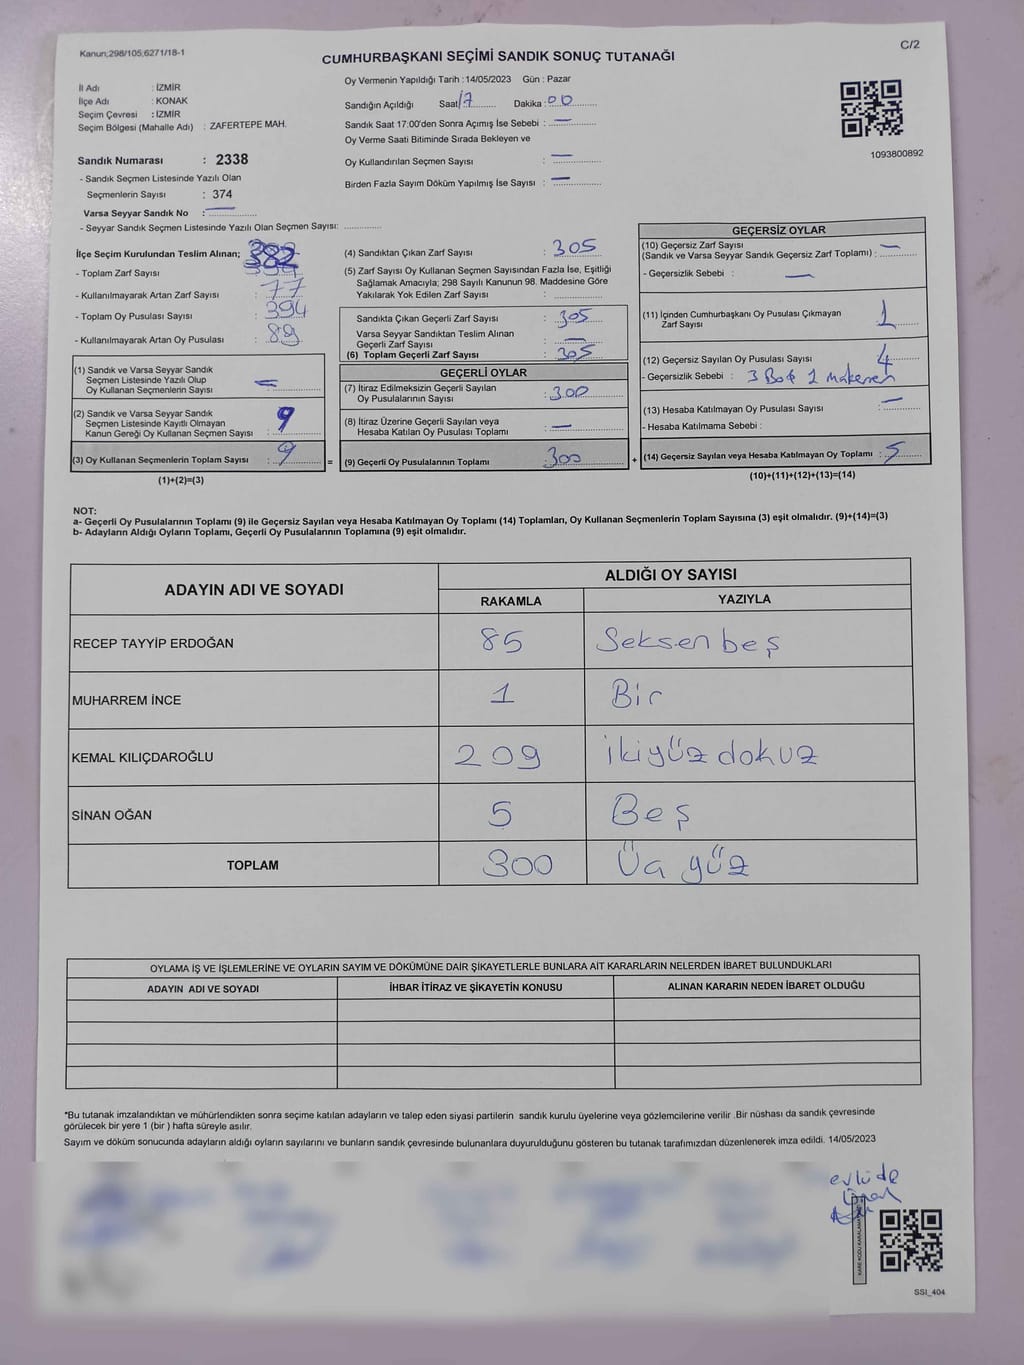 Kanun;298/105;6271/18-1
C/2
CUMHURBAŞKANI SEÇİMİ SANDIK SONUÇ TUTANAĞI
İl Adı : İZMİR
İlçe Adı : KONAK
Seçim Çevresi : İZMİR
Seçim Bölgesi (Mahalle Adı) : ZAFERTEPE MAH.
Sandık Numarası : 2338
- Sandık Seçmen Listesinde Yazılı Olan
Seçmenlerin Sayısı : 374
Varsa Seyyar Sandık No : —
- Seyyar Sandık Seçmen Listesinde Yazılı Olan Seçmen Sayısı:
Oy Vermenin Yapıldığı Tarih :14/05/2023 Gün : Pazar
Sandığın Açıldığı Saat 17 Dakika : 00
Sandık Saat 17:00'den Sonra Açımış İse Sebebi : —
Oy Verme Saati Bitiminde Sırada Bekleyen ve
Oy Kullandırılan Seçmen Sayısı : —
Birden Fazla Sayım Döküm Yapılmış İse Sayısı : —
1093800892
İlçe Seçim Kurulundan Teslim Alınan; 382
- Toplam Zarf Sayısı :
- Kullanılmayarak Artan Zarf Sayısı : 77
- Toplam Oy Pusulası Sayısı : 394
- Kullanılmayarak Artan Oy Pusulası : 89
(1) Sandık ve Varsa Seyyar Sandık
Seçmen Listesinde Yazılı Olup
Oy Kullanan Seçmenlerin Sayısı : —
(2) Sandık ve Varsa Seyyar Sandık
Seçmen Listesinde Kayıtlı Olmayan
Kanun Gereği Oy Kullanan Seçmen Sayısı : 9
(3) Oy Kullanan Seçmenlerin Toplam Sayısı : 9
(1)+(2)=(3)
=
(4) Sandıktan Çıkan Zarf Sayısı : 305
(5) Zarf Sayısı Oy Kullanan Seçmen Sayısından Fazla İse, Eşitliği
Sağlamak Amacıyla; 298 Sayılı Kanunun 98. Maddesine Göre
Yakılarak Yok Edilen Zarf Sayısı :
Sandıkta Çıkan Geçerli Zarf Sayısı : 305
Varsa Seyyar Sandıktan Teslim Alınan
Geçerli Zarf Sayısı : —
(6) Toplam Geçerli Zarf Sayısı : 305
GEÇERLİ OYLAR
(7) İtiraz Edilmeksizin Geçerli Sayılan
Oy Pusulalarının Sayısı : 300
(8) İtiraz Üzerine Geçerli Sayılan veya
Hesaba Katılan Oy Pusulası Toplamı : —
(9) Geçerli Oy Pusulalarının Toplamı : 300
+
GEÇERSİZ OYLAR
(10) Geçersiz Zarf Sayısı
(Sandık ve Varsa Seyyar Sandık Geçersiz Zarf Toplamı) : —
- Geçersizlik Sebebi : —
(11) İçinden Cumhurbaşkanı Oy Pusulası Çıkmayan
Zarf Sayısı : 1
(12) Geçersiz Sayılan Oy Pusulası Sayısı : 4
- Geçersizlik Sebebi : 3 Boş 1
(13) Hesaba Katılmayan Oy Pusulası Sayısı : —
- Hesaba Katılmama Sebebi :
(14) Geçersiz Sayılan veya Hesaba Katılmayan Oy Toplamı : 5
(10)+(11)+(12)+(13)=(14)
NOT:
a- Geçerli Oy Pusulalarının Toplamı (9) ile Geçersiz Sayılan veya Hesaba Katılmayan Oy Toplamı (14) Toplamları, Oy Kullanan Seçmenlerin Toplam Sayısına (3) eşit olmalıdır. (9)+(14)=(3)
b- Adayların Aldığı Oyların Toplamı, Geçerli Oy Pusulalarının Toplamına (9) eşit olmalıdır.
ADAYIN ADI VE SOYADI ALDIĞI OY SAYISI
RAKAMLA YAZIYLA
RECEP TAYYİP ERDOĞAN 85 Seksen beş
MUHARREM İNCE 1 Bir
KEMAL KILIÇDAROĞLU 209 ikiyüz dokuz
SİNAN OĞAN 5 Beş
TOPLAM 300 Üa yüz
OYLAMA İŞ VE İŞLEMLERİNE VE OYLARIN SAYIM VE DÖKÜMÜNE DAİR ŞİKAYETLERLE BUNLARA AİT KARARLARIN NELERDEN İBARET BULUNDUKLARI
ADAYIN ADI VE SOYADI İHBAR İTİRAZ VE ŞİKAYETİN KONUSU ALINAN KARARIN NEDEN İBARET OLDUĞU
*Bu tutanak imzalandıktan ve mühürlendikten sonra seçime katılan adayların ve talep eden siyasi partilerin sandık kurulu üyelerine veya gözlemcilerine verilir .Bir nüshası da sandık çevresinde
görülecek bir yere 1 (bir ) hafta süreyle asılır.
Sayım ve döküm sonucunda adayların aldığı oyların sayılarını ve bunların sandık çevresinde bulunanlara duyurulduğunu gösteren bu tutanak tarafımızdan düzenlenerek imza edildi. 14/05/2023
SSI_404